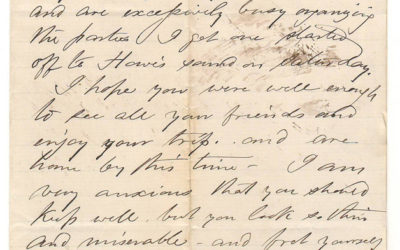 and are excessively busy organizing
the parties I get one started
off to Howe's sound on Saturday.
I hope you were well enough
to see all your friends and
enjoy your trip. and are
home by this time - I am
very anxious that you should
keep well. but you look so thin
and miserable - and fret yourself